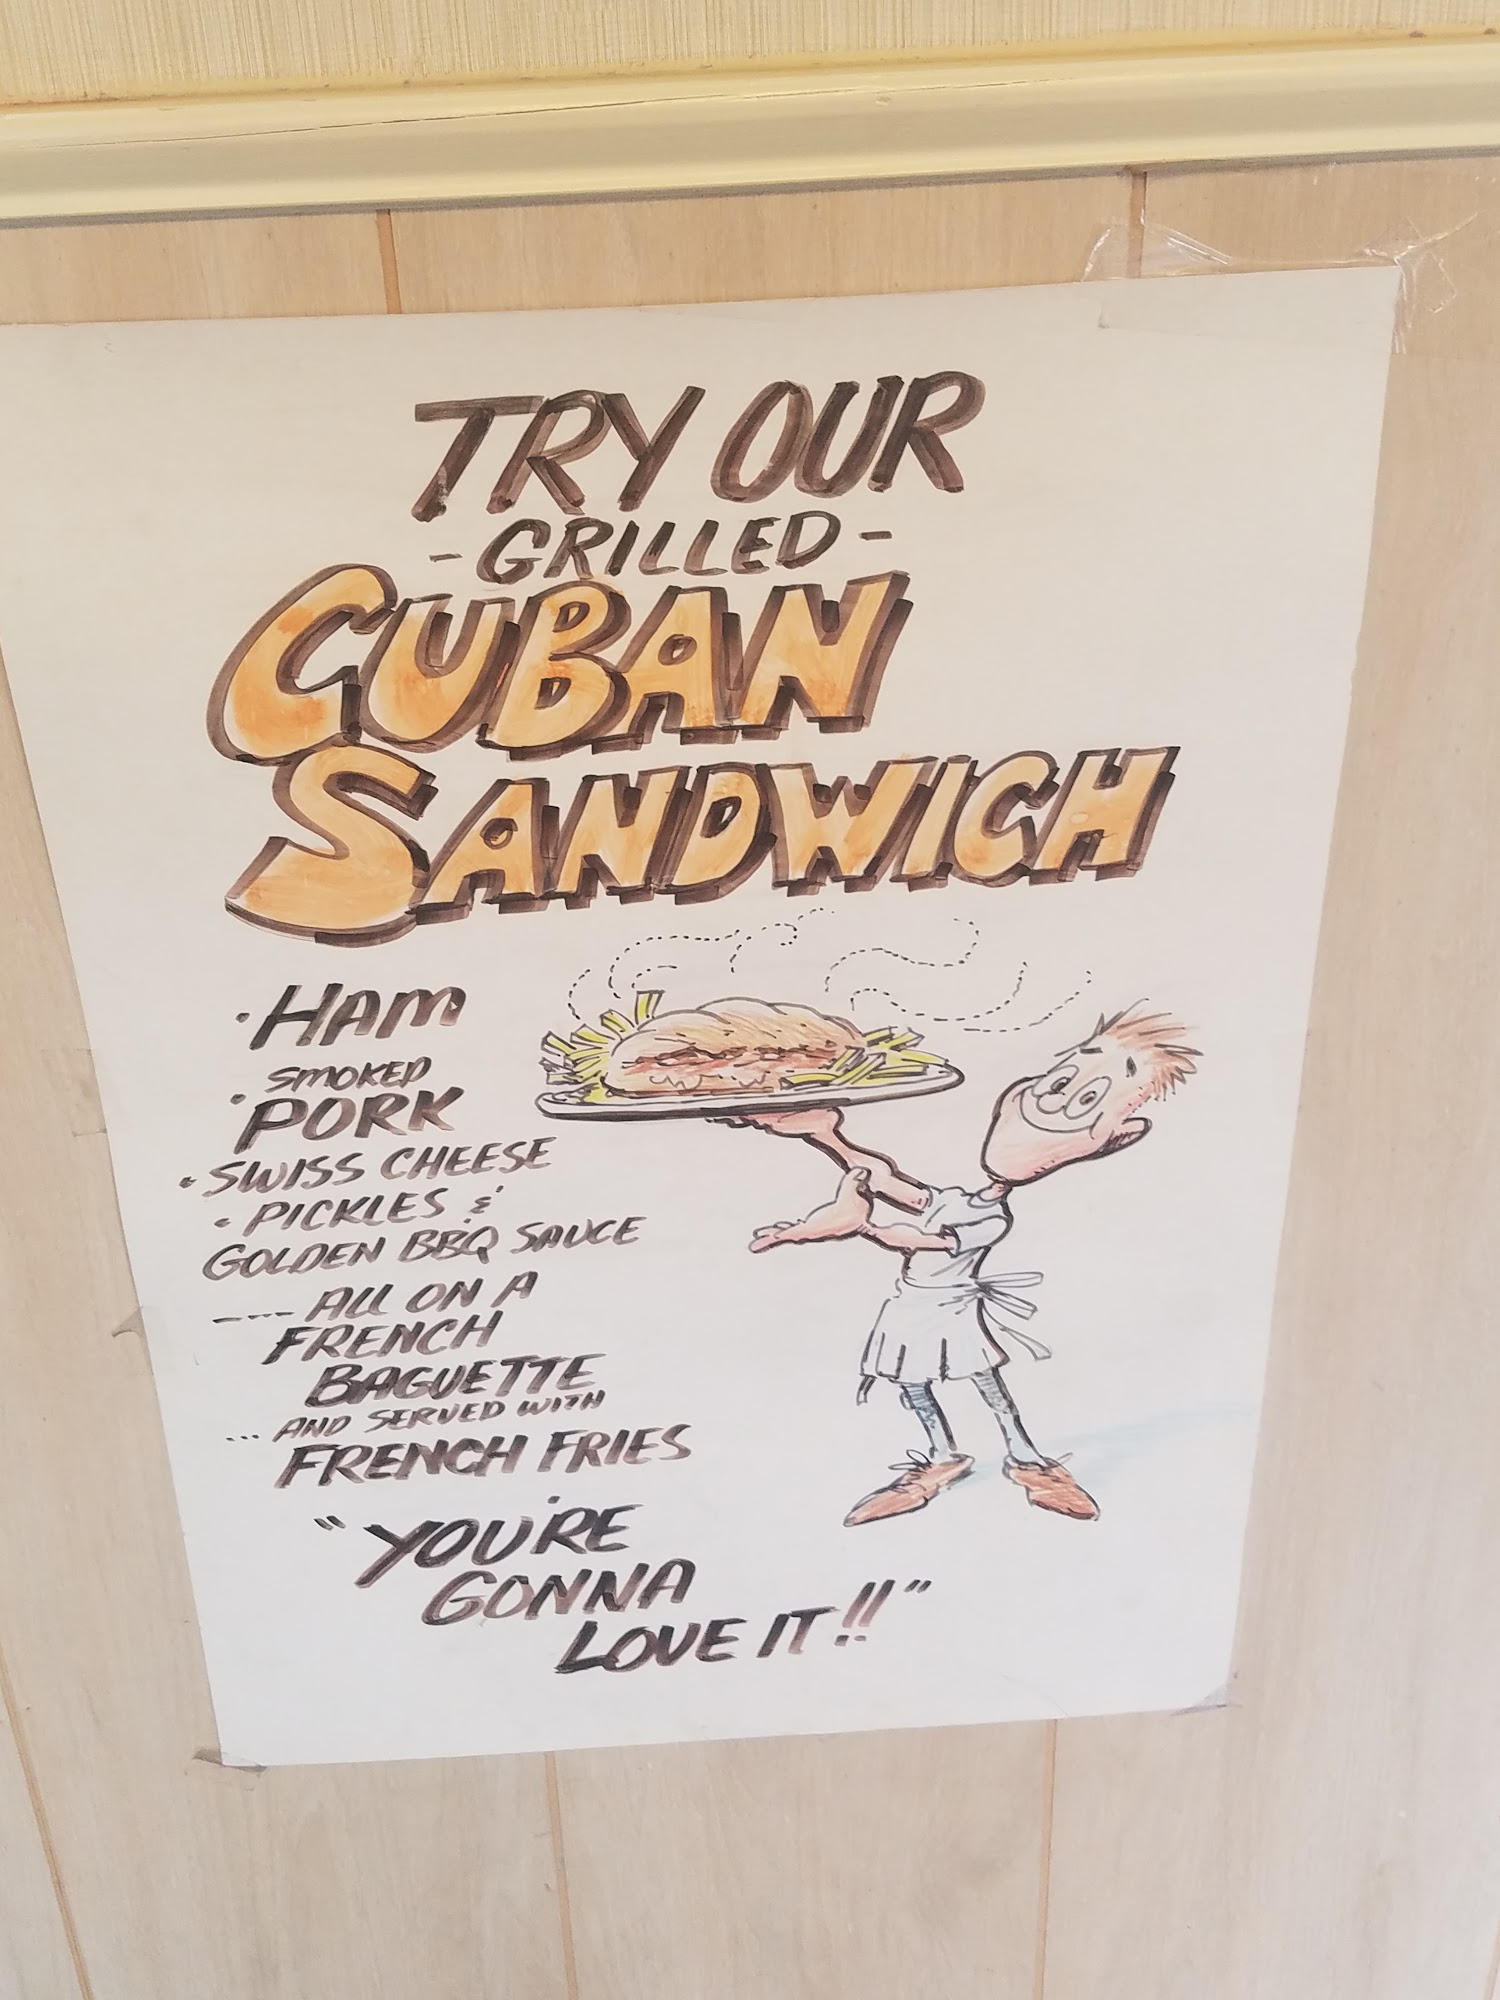 TRY OUR
- GRILLED -
CUBAN
SANDWICH
· HAM
· SMOKED
PORK
· SWISS CHEESE
· PICKLES &
GOLDEN BBQ SAUCE
----- ALL ON A
FRENCH
BAGUETTE
... AND SERVED WITH
FRENCH FRIES
"YOU'RE
GONNA
LOVE IT!!"